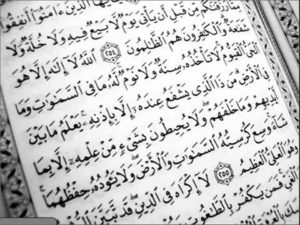 ٱلَّذِينَ ءَامَنُوٓا۟ أَنفِقُوا۟
رَزَقْنَـٰكُم مِّن قَبْلِ أَن يَأْتِىَ يَوْمٌ لَّا بَيْعٌ فِيهِ وَلَا خُلَّةٌ وَلَا
شَفَـٰعَةٌ وَٱلْكَـٰفِرُونَ هُمُ ٱلظَّـٰلِمُونَ ٢٥٤ ٱللَّهُ لَآ إِلَـٰهَ إِلَّا هُوَ
ٱلْحَىُّ ٱلْقَيُّومُ لَا تَأْخُذُهُۥ سِنَةٌ وَلَا نَوْمٌ لَّهُۥ مَا فِى ٱلسَّمَـٰوَٰتِ وَمَا
فِى ٱلْأَرْضِ مَن ذَا ٱلَّذِى يَشْفَعُ عِندَهُۥٓ إِلَّا بِإِذْنِهِۦ يَعْلَمُ مَا بَيْنَ
أَيْدِيهِمْ وَمَا خَلْفَهُمْ وَلَا يُحِيطُونَ بِشَىْءٍ مِّنْ عِلْمِهِۦٓ إِلَّا بِمَا
شَآءَ وَسِعَ كُرْسِيُّهُ ٱلسَّمَـٰوَٰتِ وَٱلْأَرْضَ وَلَا يَـُٔودُهُۥ حِفْظُهُمَا
وَهُوَ ٱلْعَلِىُّ ٱلْعَظِيمُ ٢٥٥ لَآ إِكْرَاهَ فِى ٱلدِّينِ قَد تَّبَيَّنَ ٱلرُّشْدُ
ٱلْغَىِّ فَمَن يَكْفُرْ بِٱلطَّـٰغُوتِ